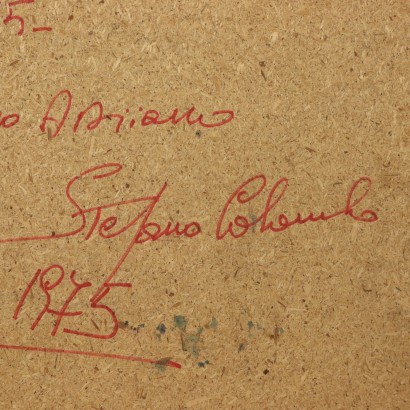 5-
Stefano Colombo
1975